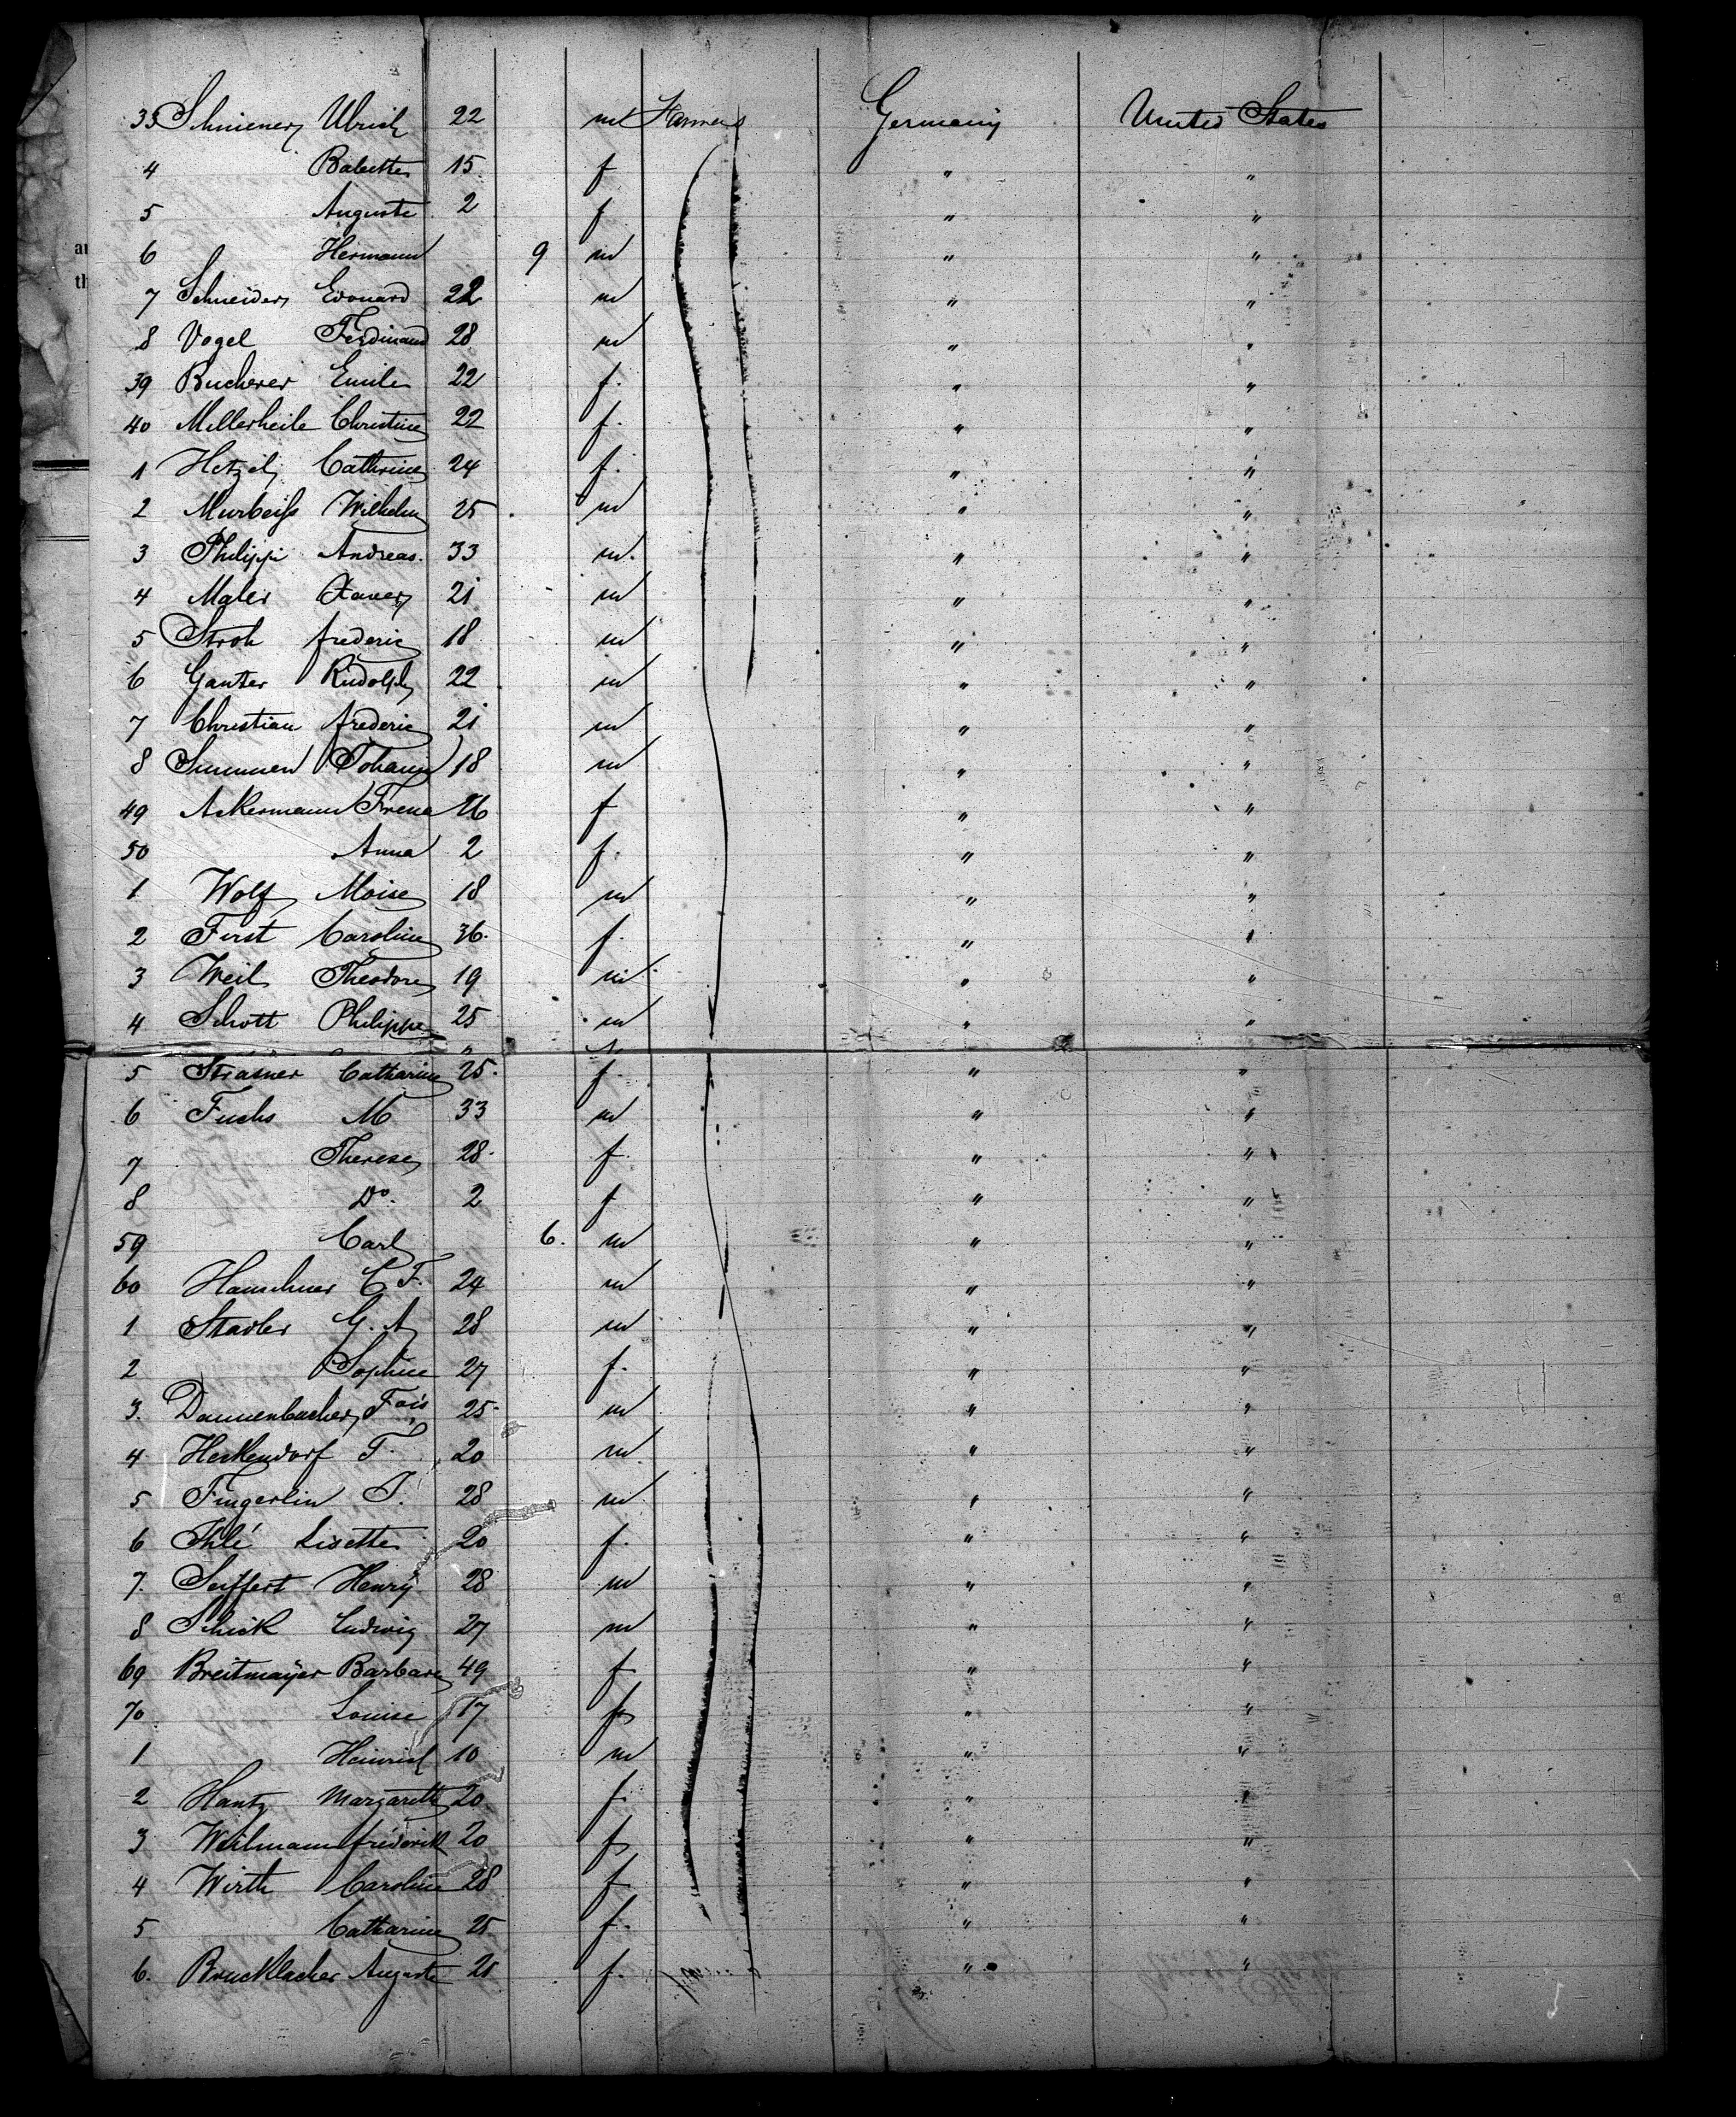 33 Schniener Ulrich 22 m Farmers Germany United States
4 Babette 15 f " "
5 Auguste 2 f " "
6 Hermann 9 m " "
7 Schneider Edouard 22 m " "
8 Vogel Ferdinand 28 m " "
39 Bucherer Emile 22 f. " "
40 Millerheile Christine 22 f. " "
1 Hetzel Cathrine 24 f. " "
2 Murbeiss Wilhelm 25 m " "
3 Philippi Andreas. 33 m. " "
4 Maler Xaver 21 m " "
5 Stroh frederic 18 m " "
6 Ganter Rudolph 22 m " "
7 Christian frederic 21 m " "
8 Johann 18 m " "
49 Ackermann 26 f " "
50 Anna 2 f. " "
1 Wolf Moise 18 m " "
2 First Caroline 36. f. " "
3 Weil Theodore 19 m " "
4 Schott Philippe 25 m " "
5 Strasner Catharine 25. f. " "
6 Fuchs M 33 m " "
7 Therese 28. f. " "
8 Do. 2 f " "
59 Carl 6. m " "
60 Hauschner C F. 24 m " "
1 Stadler G. A 28 m " "
2 Sophie 27 f. " "
3. Dannenbacher Fois 25. m " "
4 Heckendorf F. 20 m. " "
5 Fingerlin J. 28 m " "
6 Ihlé Lisette 20 f. " "
7. Seiffert Henry 28 m " "
8 Schick Ludwig 27 m " "
69 Breitmayer Barbara 49 f " "
70 Louise 17 f " "
1 Heinrich 10 m " "
2 Hantz Margareth 20. f. " "
3 Weilmann fréderick 20 f " "
4 Wirth Caroline 28 f. " "
5 Catharine 25 f. " "
6. Brucklacher Auguste 21 f. " "